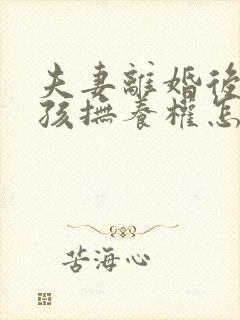 夫妻離婚後
孩撫養權怎
苦海心